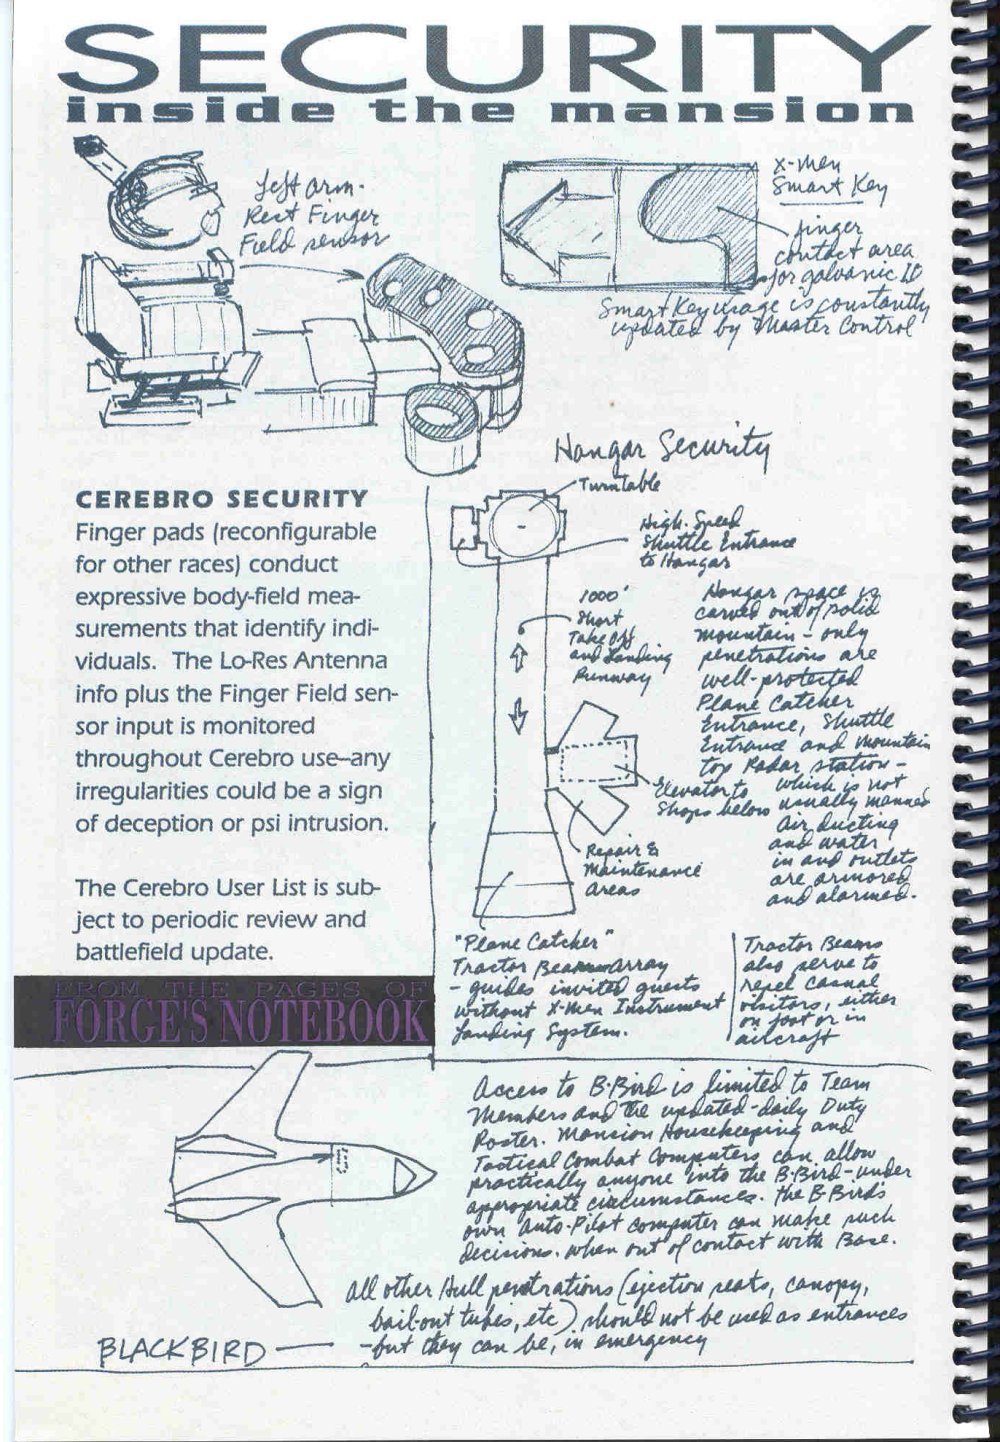 SECURITY
inside the mansion
Left arm-
Rest Finger
Field sensor
X-Men
Smart Key
finger
contact area
for galvanic ID
Smart Key usage is constantly
updated by Master Control
CEREBRO SECURITY
Finger pads (reconfigurable
for other races) conduct
expressive body-field mea-
surements that identify indi-
viduals. The Lo-Res Antenna
info plus the Finger Field sen-
sor input is monitored
throughout Cerebro use–any
irregularities could be a sign
of deception or psi intrusion.
The Cerebro User List is sub-
ject to periodic review and
battlefield update.
FROM THE PAGES OF
FORGE'S NOTEBOOK
Hangar Security
Turntable
High-Speed
Shuttle Entrance
to Hangar
1000'
Short
Take Off
and Landing
Runway
Hangar space is
carved out of solid
mountain - only
penetrations are
well-protected
Plane Catcher
Entrance, Shuttle
Entrance and Mountain
top Radar station -
which is not
usually manned
Air ducting
and water
in and outlets
are armored
and alarmed.
Elevator to
Shops below
Repair &
Maintenance
Areas
"Plane Catcher"
Tractor Beam Array
- guides invited guests
without X-Men Instrument
Landing System.
Tractor Beams
also serve to
repel casual
visitors, either
on foot or in
aircraft
Access to B-Bird is limited to Team
Members and the updated-daily Duty
Roster. Mansion Housekeeping and
Tactical Combat Computers can allow
practically anyone into the B-Bird - under
appropriate circumstances. The B-Bird's
own Auto-Pilot computer can make such
decisions. when out of contact with Base.
All other Hull penetrations (ejection seats, canopy,
bail-out tubes, etc) should not be used as entrances
- but they can be, in emergency
BLACKBIRD